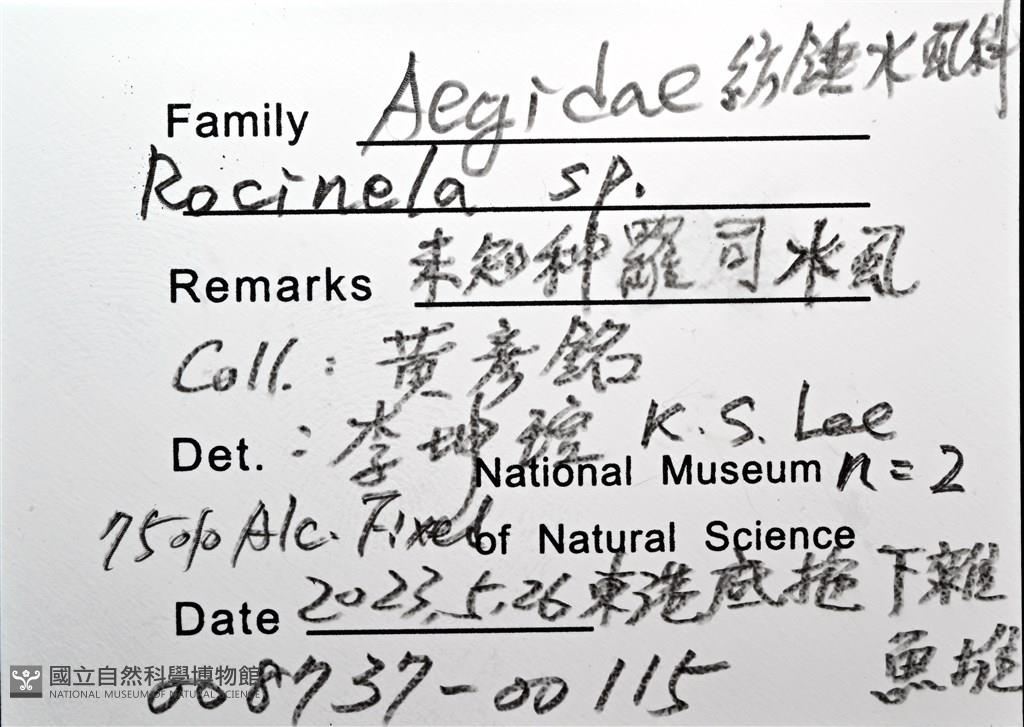 Family Aegidae 紡錘水虱科
Rocinela sp.
Remarks 未知种羅司水虱
Coll.: 黃彥銘
Det.: 李坤瑄 K.S. Lee
National Museum n=2
75% Alc. Fixed of Natural Science
Date 2023.5.26 東港底拖下雜
魚堆
008737-00115
國立自然科學博物館
NATIONAL MUSEUM OF NATURAL SCIENCE